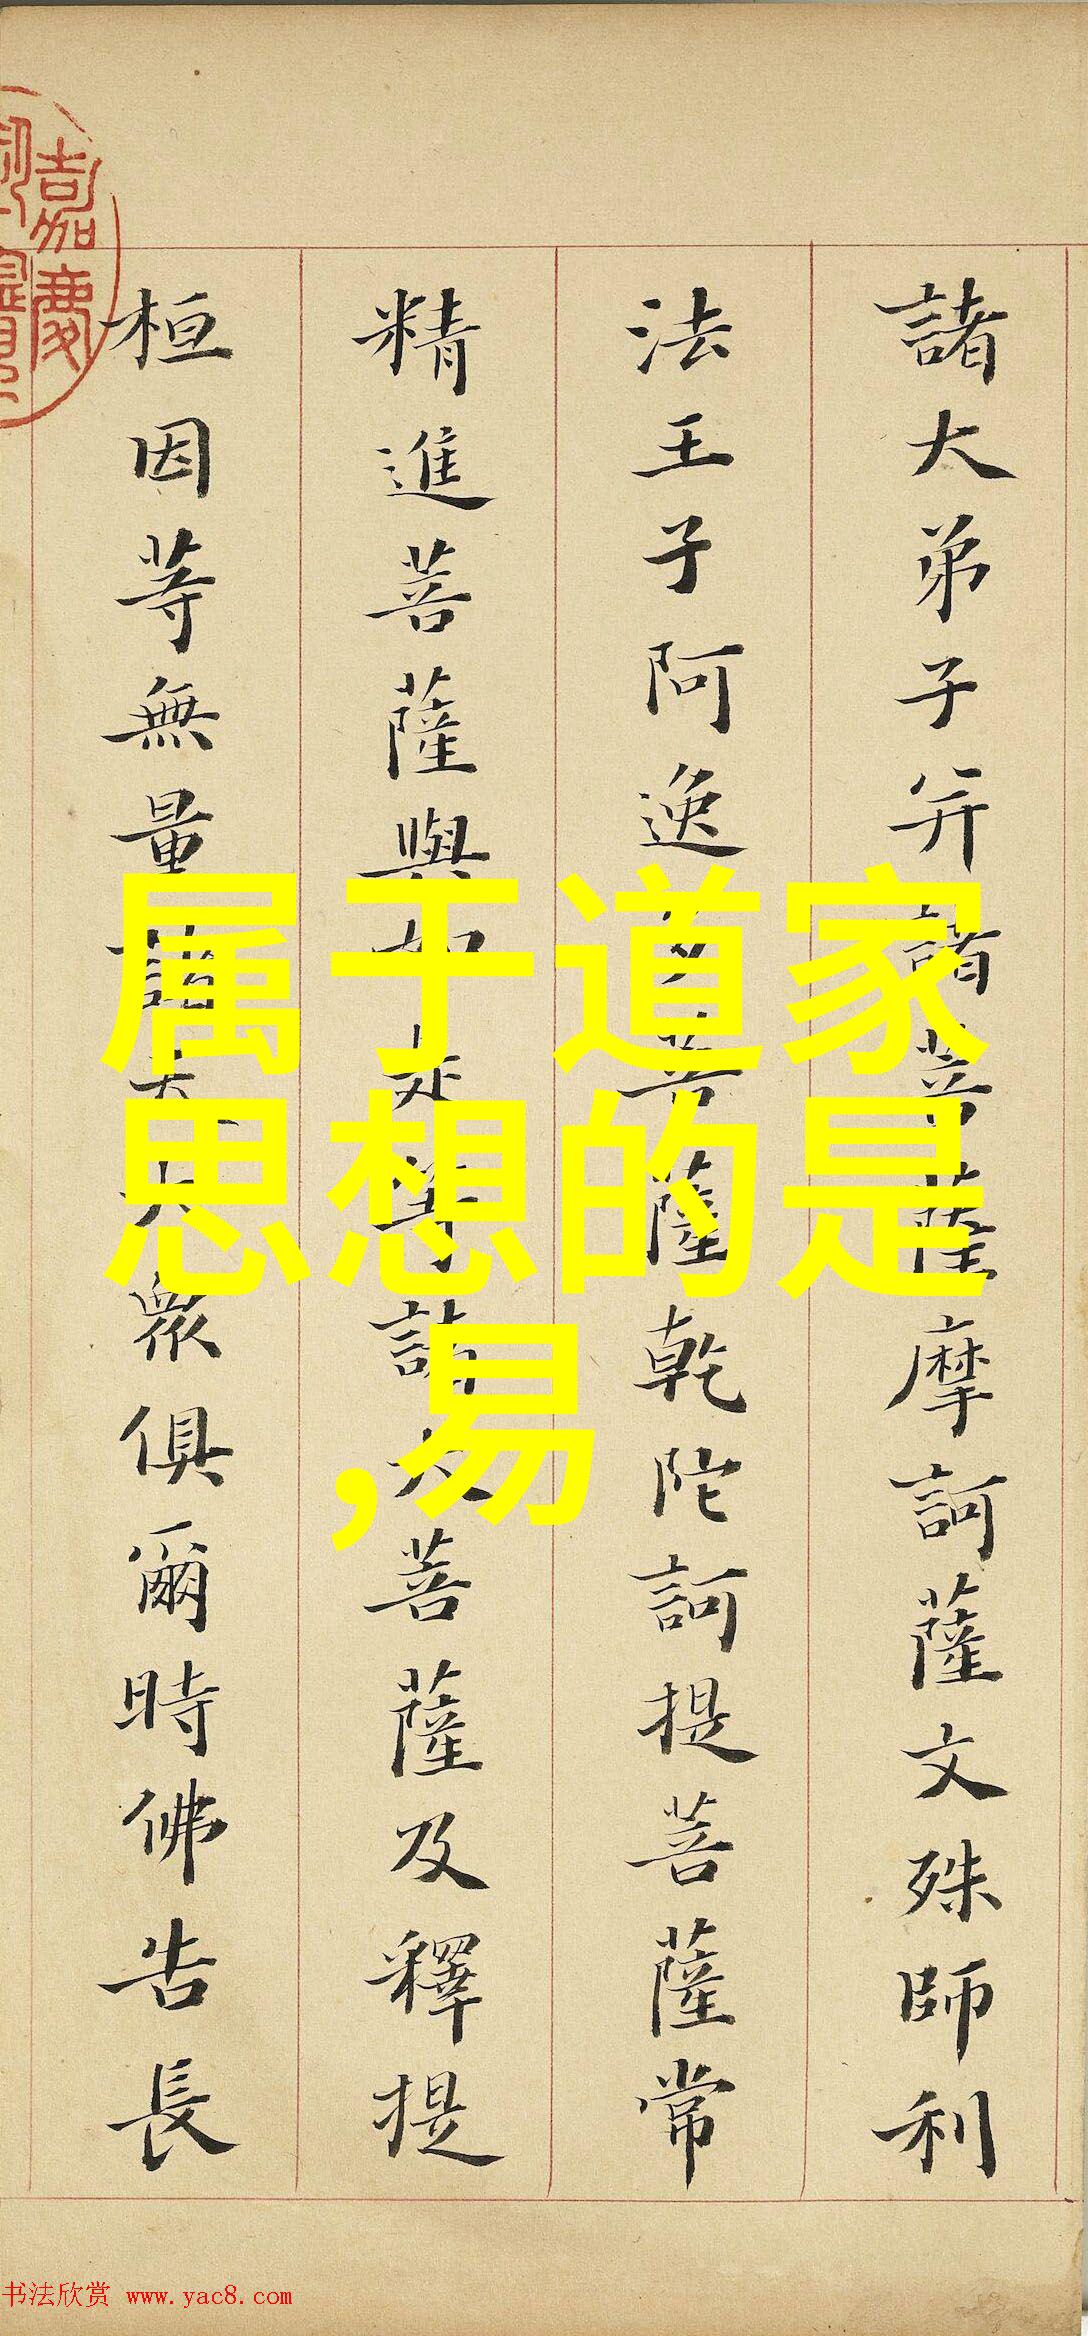 諸大弟子并諸菩薩摩訶薩文殊師利
法王子阿逸多菩薩乾陀訶提菩薩常
精進菩薩與如是等諸大菩薩及釋提
桓因等無量諸天大衆俱爾時佛告長
嘉慶
属于道家
思想的是
,易
书法欣赏 www.yac8.com